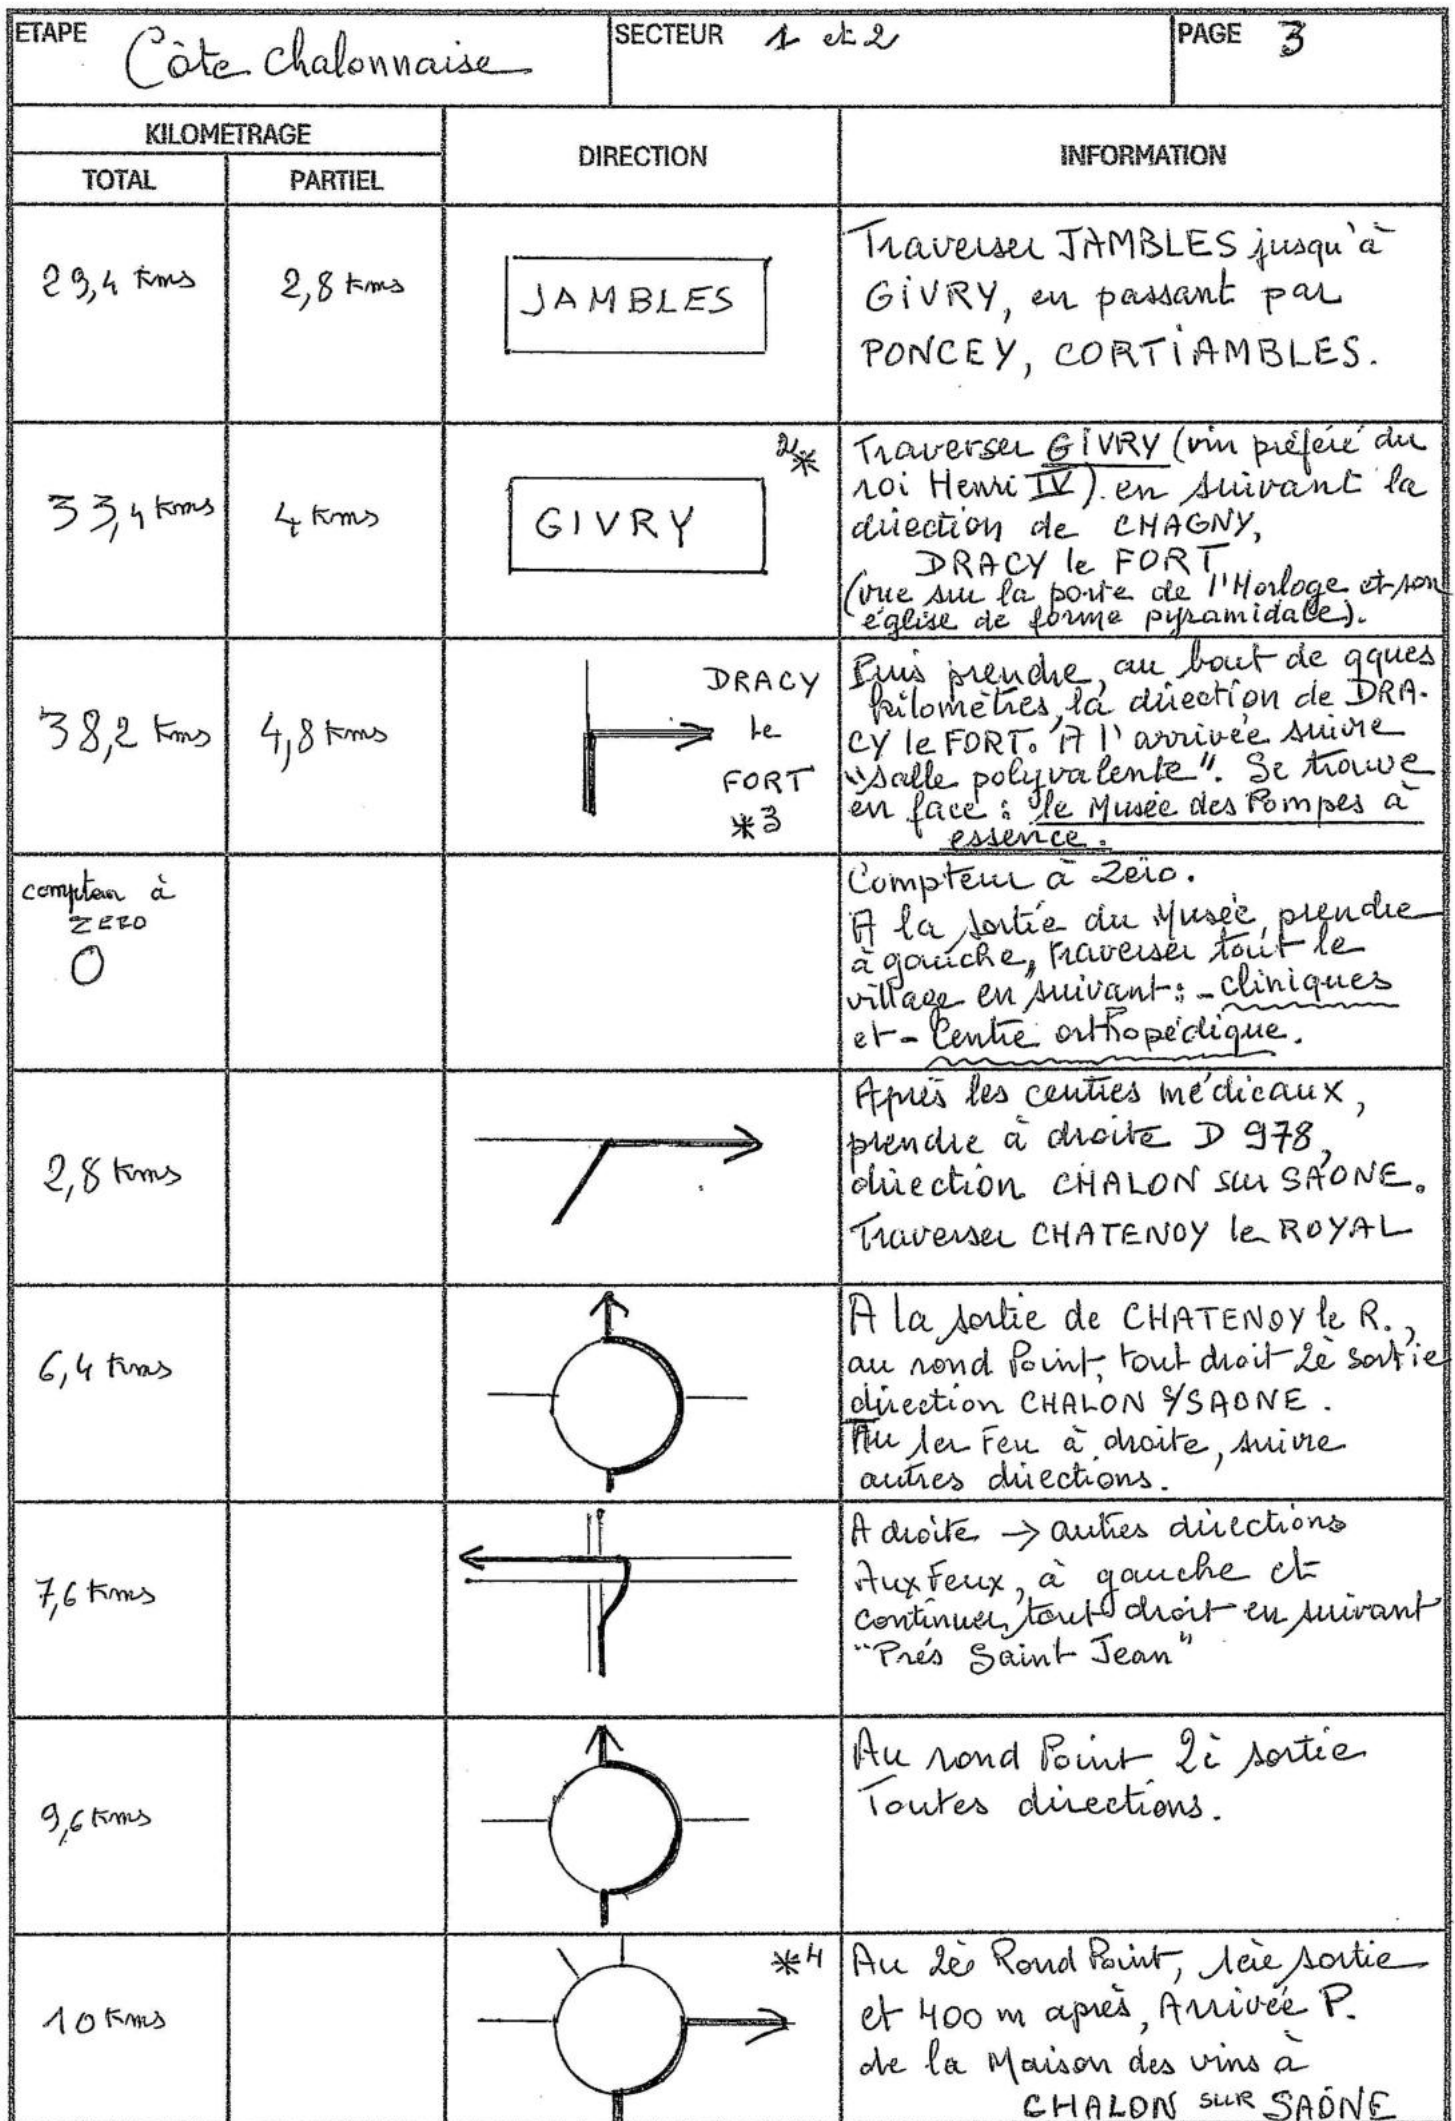 ETAPE Côte Chalonnaise SECTEUR 1 et 2 PAGE 3
KILOMETRAGE DIRECTION INFORMATION
TOTAL PARTIEL
29,4 kms 2,8 kms JAMBLES
Traverser JAMBLES jusqu'à
GIVRY, en passant par
PONCEY, CORTIAMBLES.
33,4 kms 4 kms GIVRY 2*
Traverser GIVRY (vin préféré du
roi Henri IV) en suivant la
direction de CHAGNY,
DRACY le FORT
(vue sur la porte de l'Horloge et son
église de forme pyramidale).
38,2 kms 4,8 kms
DRACY
le
FORT
*3
Puis prendre, au bout de qques
kilomètres, la direction de DRA-
CY le FORT. A l'arrivée suivre
"salle polyvalente". Se trouve
en face : le Musée des Pompes à
essence.
compteur à
ZERO
0
Compteur à Zéro.
A la sortie du Musée, prendre
à gauche, traverser tout le
village en suivant : - cliniques
et - Centre orthopédique.
2,8 kms
Après les centres médicaux,
prendre à droite D 978,
direction CHALON sur SAÔNE.
Traverser CHATENOY le ROYAL
6,4 kms
A la sortie de CHATENOY le R.,
au rond Point, tout droit 2è sortie
direction CHALON S/SAONE.
Au 1er Feu à droite, suivre
autres directions.
7,6 kms
A droite → autres directions
Aux Feux, à gauche et
continuer tout droit en suivant
"Prés Saint Jean"
9,6 kms
Au rond Point 2è sortie
Toutes directions.
10 kms *4
Au 2è Rond Point, 1ère sortie
et 400 m après, Arrivée P.
de la Maison des vins à
CHALON SUR SAÔNE